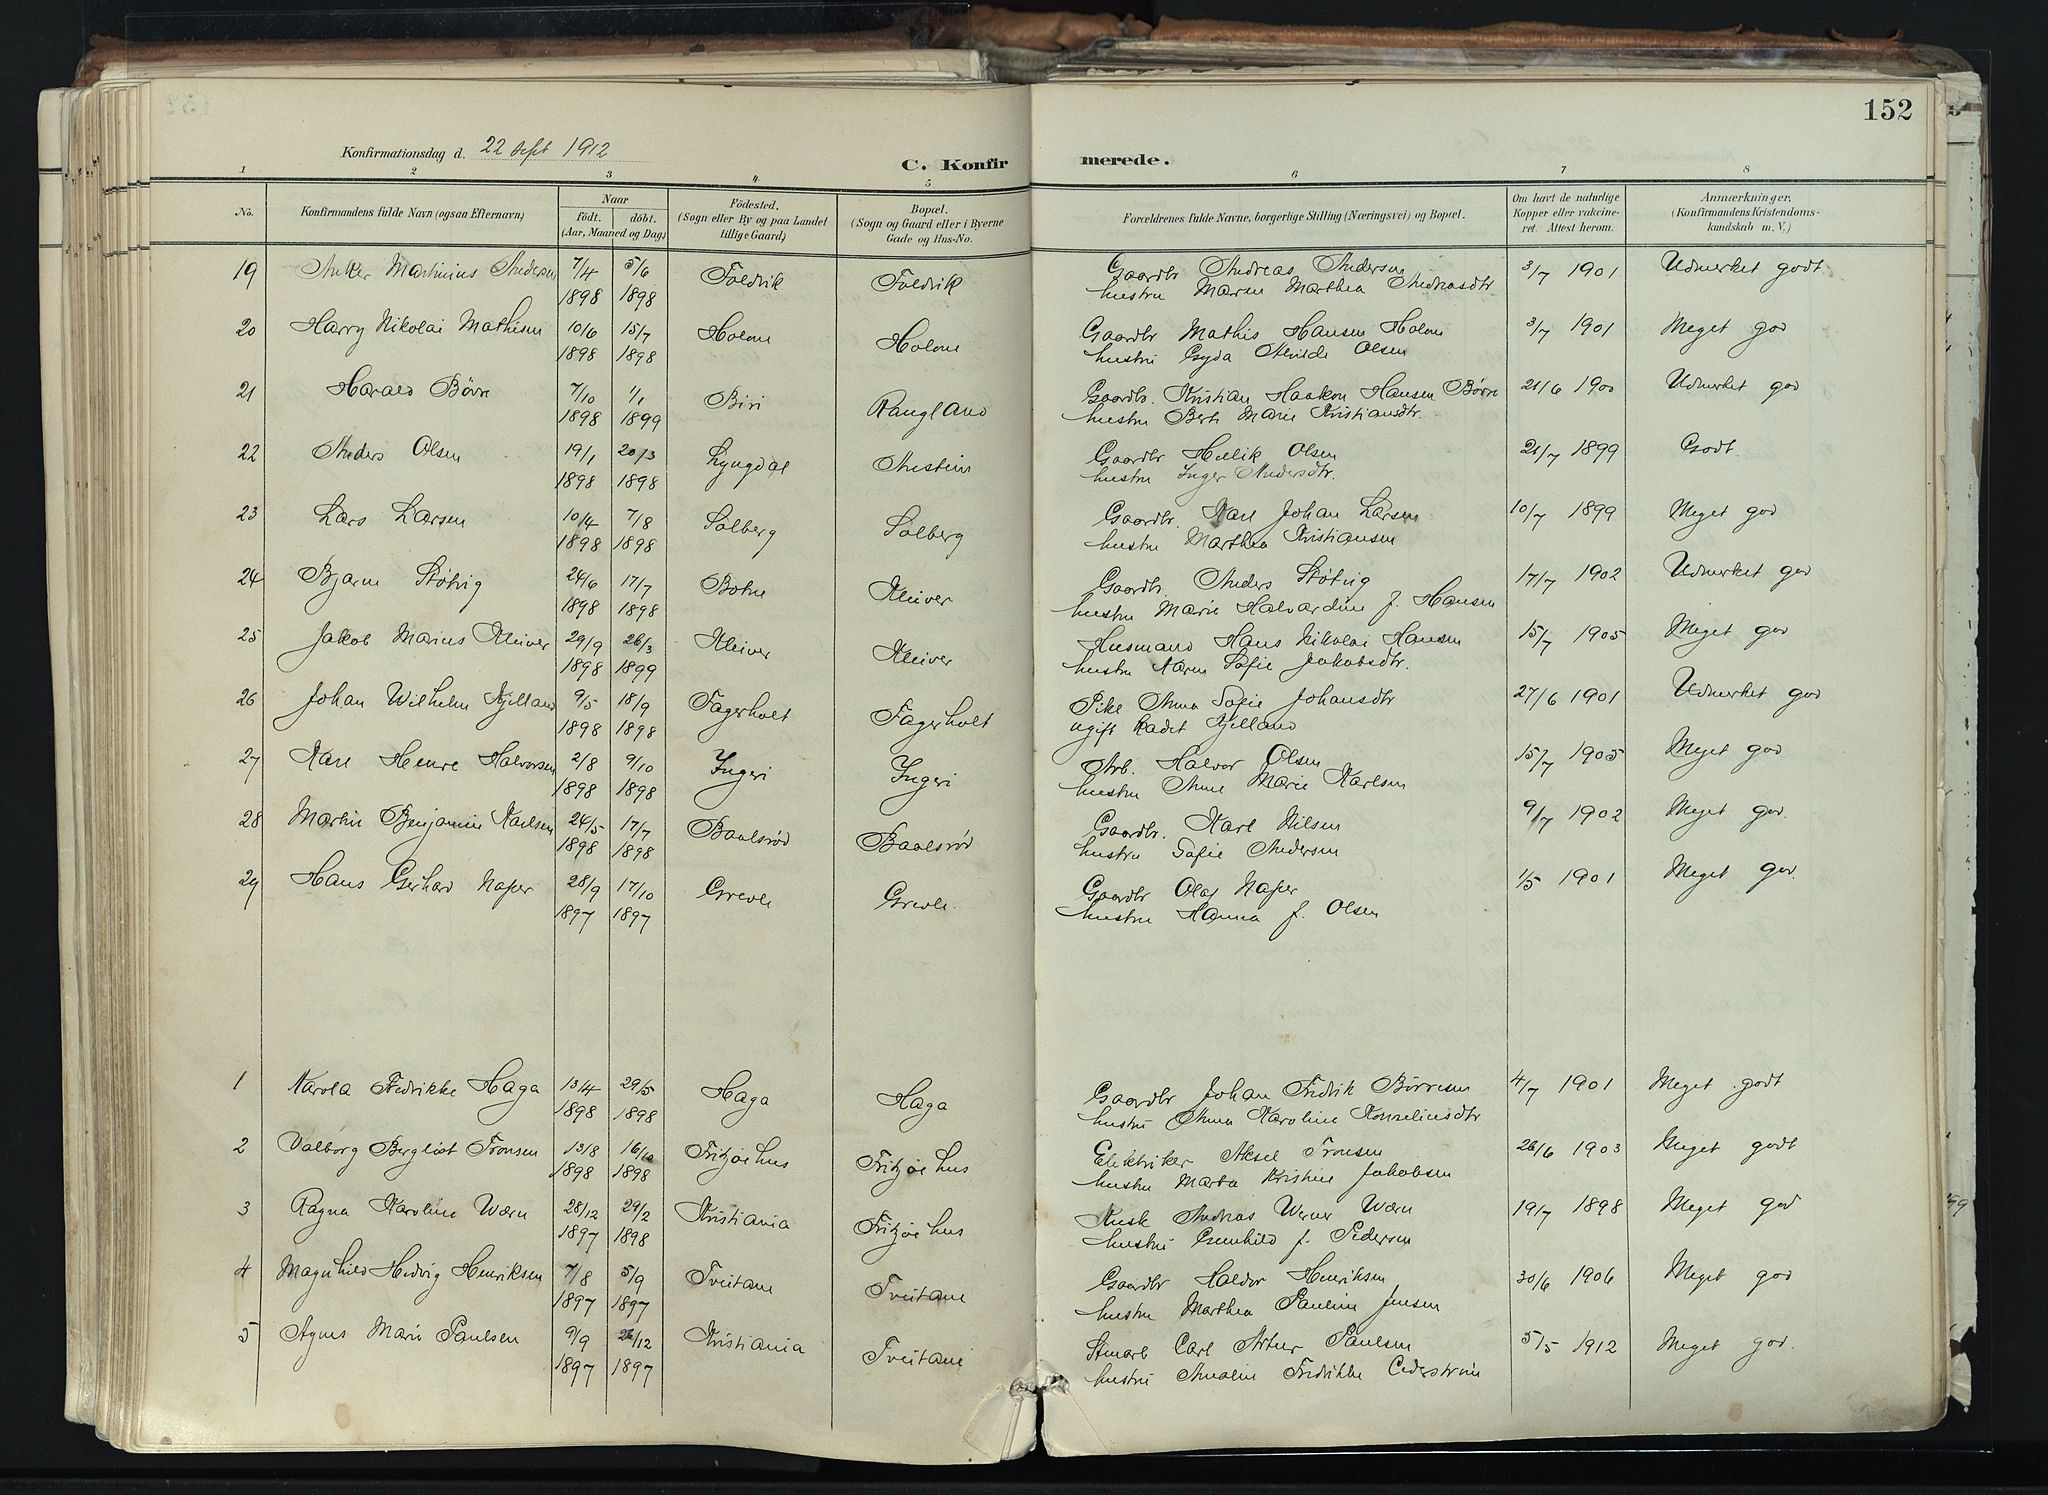 152
Konfirmationsdag d. 22 Sept 1912
C. Konfirmerede.
1 2 3 4 5 6 7 8
No. Konfirmandens fulde Navn (ogsaa Efternavn) Naar født. døbt. (Aar, Maaned og Dag) Fødested. (Sogn eller By og paa Landet tillige Gaard) Bopæl. (Sogn og Gaard eller i Byerne Gade og Hus-No. Forældrenes fulde Navne, borgerlige Stilling (Næringsvei) og Bopæl. Om havt de naturlige Kopper eller vakcineret. Attest herom. Anmærkninger, (Konfirmandens Kristendomskundskab m. V.)
19 Anker Martinius Andersen 7/4 5/6 Foldvik Foldvik Gaardbr Andreas Andersen 3/7 1901 Udmerket godt
1898 1898 hustru Maren Marthea Andreasdtr
20 Harry Nikolai Mathisen 10/6 15/7 Holom Holom Gaardbr Mathis Hansen Holom 3/7 1901 Meget god
1898 1898 hustru Gyda Alvilde Olsen
21 Harald Børre 7/10 1/1 Biri Rangland Gaardb. Kristian Haakon Hansen Børre 21/6 1900 Udmerket god
1898 1899 hustru Berte Marie Kristiansdtr.
22 Anders Olsen 19/1 20/3 Lyngdal Gaardbr Hellik Olsen 21/7 1899 Godt.
1898 1898 hustru Inger Andersdtr.
23 Lars Larsen 10/4 7/8 Solberg Solberg Gaardbr. Karl Johan Larsen 10/7 1899 Meget god
1898 1898 hustru Marthea Kristiansen
24 Bjarne Støtvig 24/6 17/7 Botne Kleiver Gaardbr. Anders Støtvig 17/7 1902 Udmerket god
1898 1898 hustru Marie Halvardine f. Hansen
25 Jakob Marius Kleiver 29/9 26/3 Kleiver Kleiver Husmand Hans Nikolai Hansen 15/7 1905 Meget god
1898 1899 hustru Karen Sofie Jakobsdtr.
26 Johan Wilhelm Kjelland 9/5 18/9 Fagerholt Fagerholt Pike Anna Sofie Johansdtr 27/6 1901 Udmerket god
1898 1898 ugift Kadet Kjelland
27 Karl Henre Halvorsen 2/8 9/10 Yngeri Yngeri Arb. Halvor Olsen 15/7 1905 Meget god
1898 1898 hustru Anne Marie Karlsen
28 Martin Benjamin Karlsen 24/5 17/7 Baalsrød Baalsrød Gaardbr. Karl Nilsen 9/7 1902 Meget god.
1898 1898 hustru Sofie Andersen
29 Hans Gerhard Naper 28/9 17/10 Grevle Grevle. Gaardbr Olaf Naper 1/5 1901 Meget god.
1897 1897 hustru Hanna f. Olsen
1 Karola Fredrikke Haga 13/4 29/5 Haga Haga Gaardbr Johan Fredrik Børresen 4/7 1901 Meget godt
1898 1898 hustru Anna Karoline Korneliusdtr
2 Valborg Bergljot Tronsen 13/8 16/10 Fritzøehus Fritzøehus Elektriker Aksel Tronsen 26/6 1903 Meget godt
1898 1898 hustru Marta Kristine Jakobsen
3 Ragna Karoline Wærn 28/12 29/2 Kristiania Fritzøehus Kusk Andreas Werner Wærn 19/7 1898 Meget god
1897 1898 hustru Gunhild f. Pedersen
4 Magnhild Hedvig Henriksen 7/8 5/9 Tveitane Tveitane Gaardbr Haldor Henriksen 30/6 1906 Meget god
1897 1897 hustru Marthea Pauline Jensen
5 Agnes Marie Paulsen 9/9 26/12 Kristiania Tveitane Stuart Carl Artur Paulsen 5/5 1912 Meget god.
1897 1897 hustru Amalie Fredrikke Cederstrøm